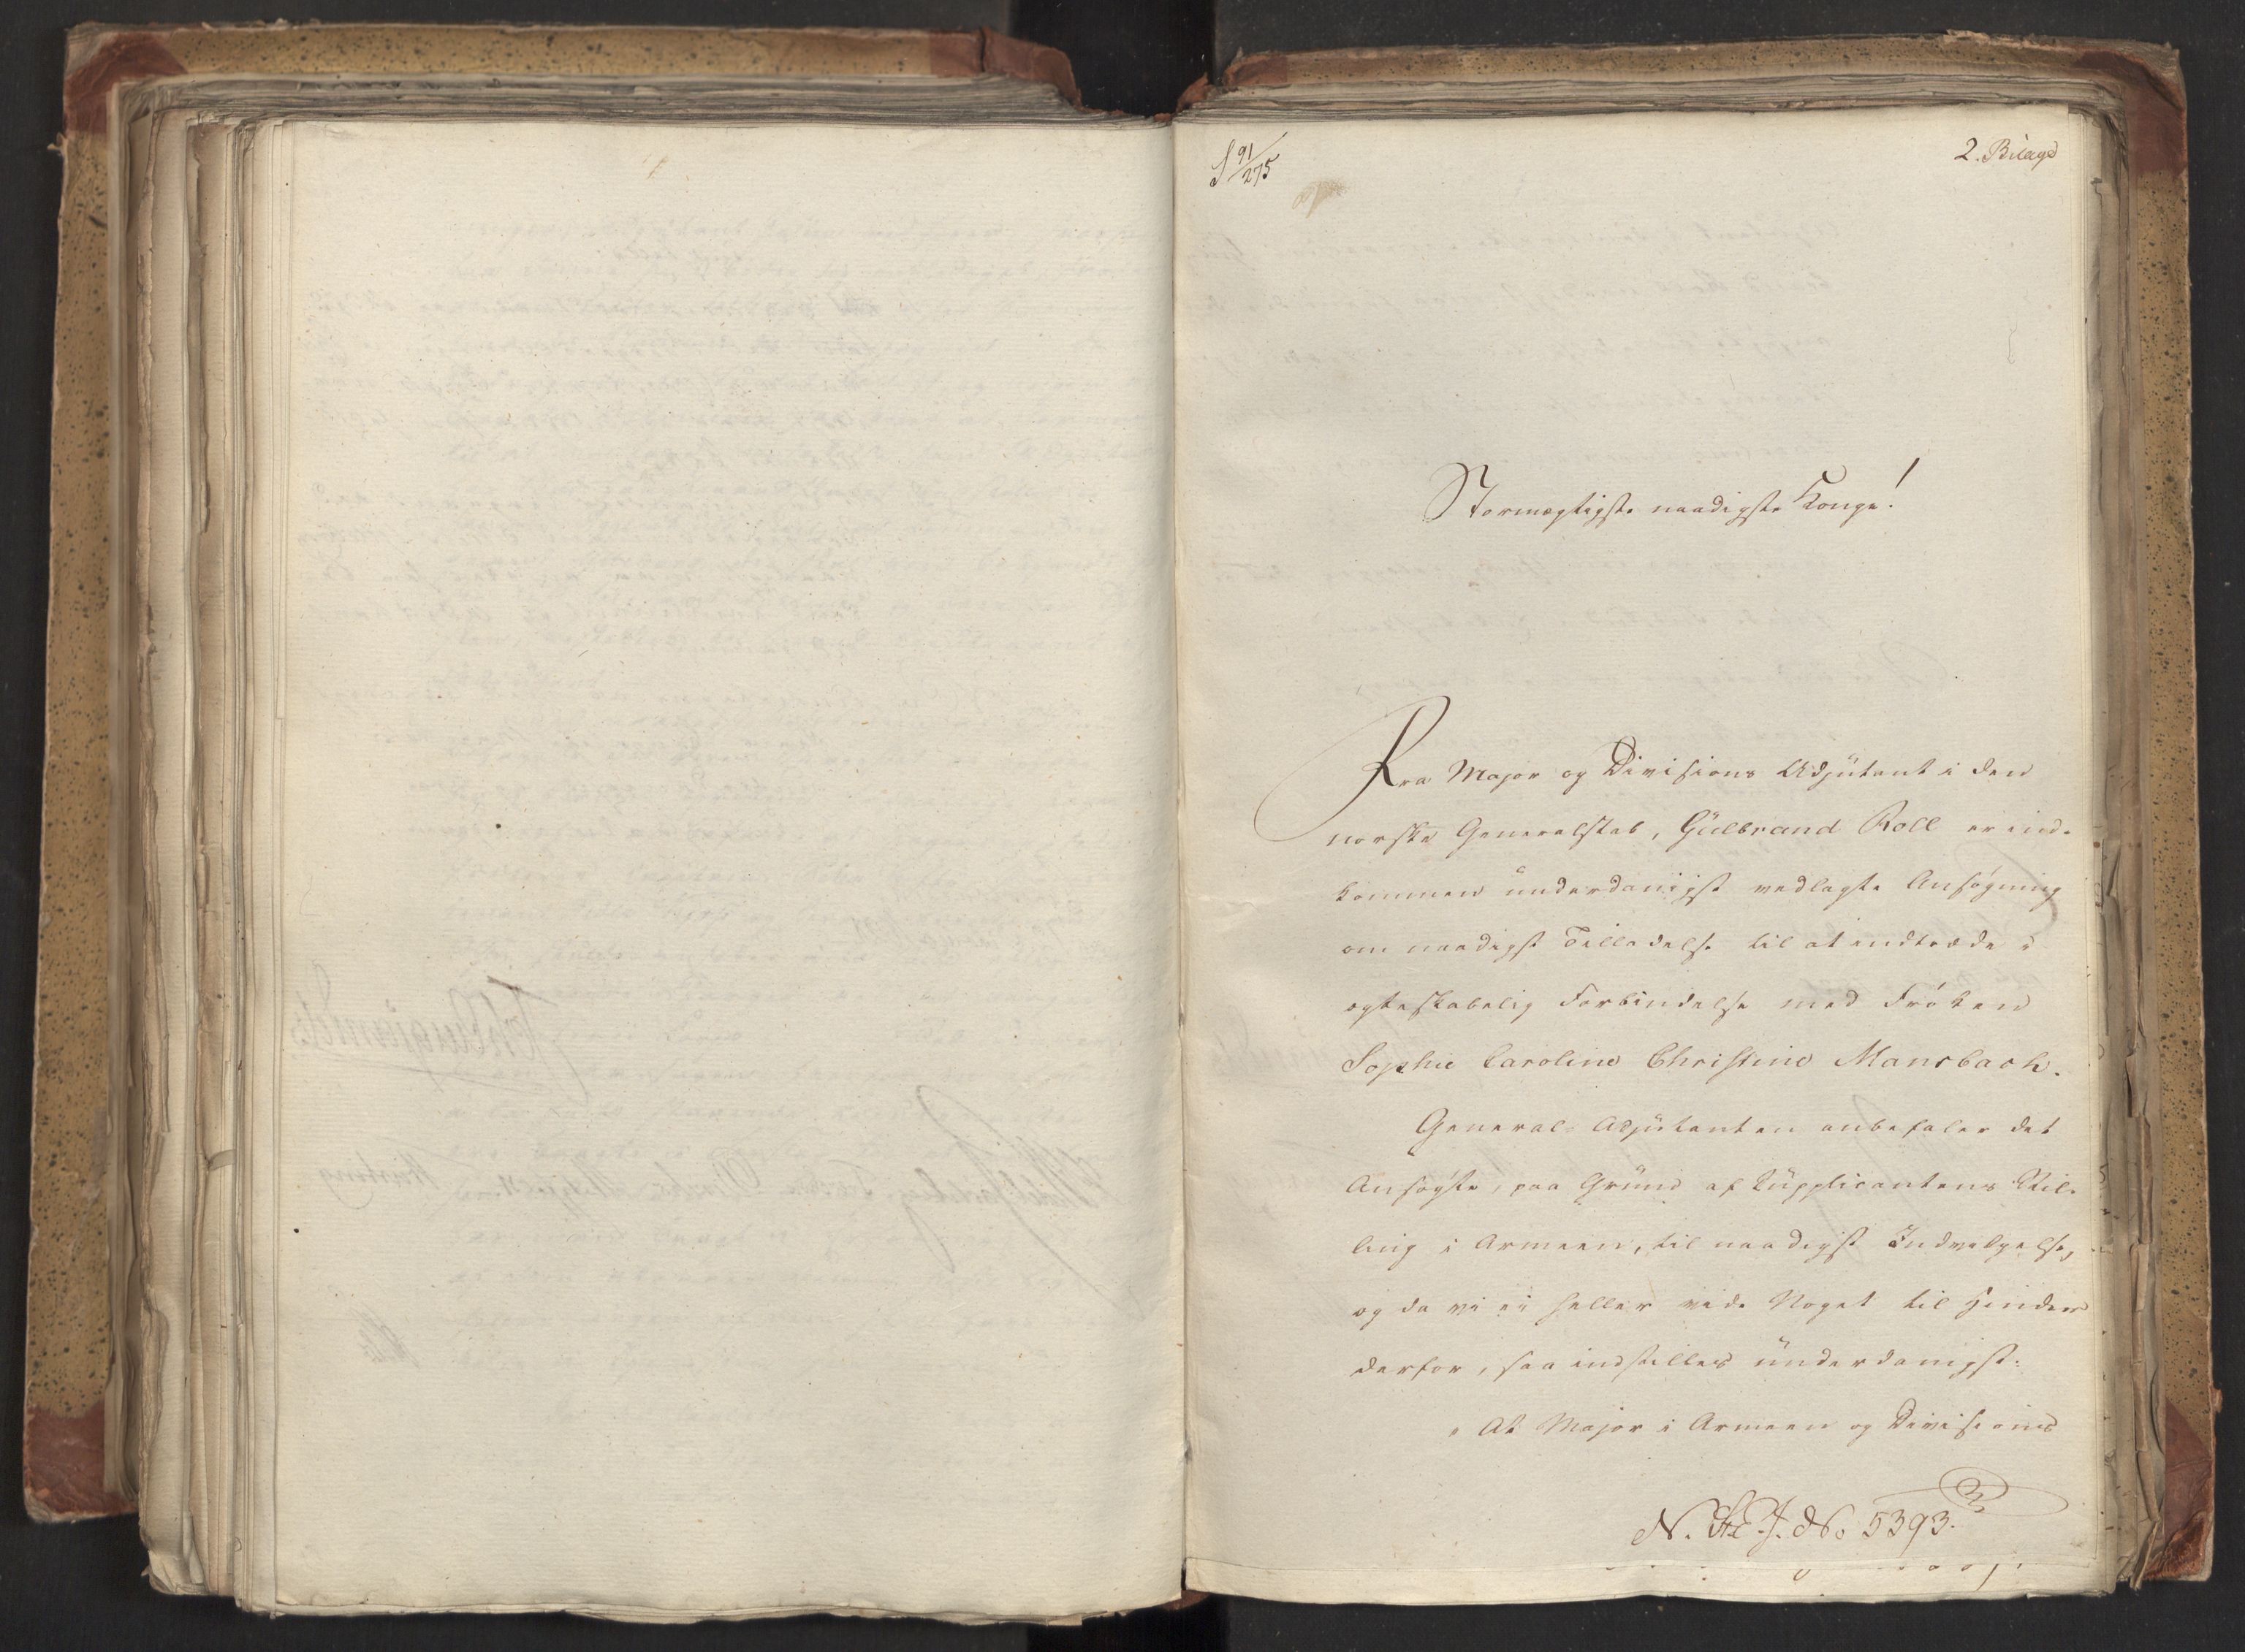 S 91/275
2. Bilage
Stormægtigste naadigste Konge!
Fra Major og Divisions Adjütant i den
norske Generalstab, Gülbrand Roll er ind-
kommen ünderdanigst vedlagte Ansøgning
om naadigst Tilladelse til at indtræde i
ægteskabelig Forbindelse med Frøken
Sophie Caroline Christine Mansbach.
General-Adjütanten anbefaler det
Ansøgte, paa Gründ af Süpplicantens Stil-
ling i Armeen, til naadigst Indvilgelse,
og da vi ei heller vide Noget til Hinder
derfor, saa indstilles ünderdanigst:
" At Major i Armeen og Divisions
N. St. E. J. No 5393.